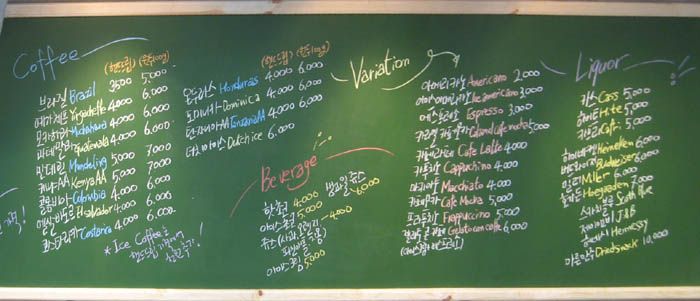 Coffee
(핸드드립) (원두100g)
브라질 Brazil 3500 5,000
예가체프 Yirgacheffe 4,000 6,000
모카하라 Mochaharra 4,000 6,000
과테말라 Guatemala 4,000 6,000
만데린 Mandeling 5,000 7000
케냐AA Kenya AA 5,000 7000
콜롬비아 Colombia 4,000 6,000
엘살바도르 El salvador 4,000 6,000
코스타리카 Costarica 4,000 6,000.
* Ice Coffee는
(핸드드립) (원두100g)
온두라스 Honduras 4,000 6,000
도미니카 Dominica 4,000 6,000
탄자니아AA Tanzania AA 4,000 6,000
더치아이스 Dutch ice 6,000
Beverage
핫초코 4,000
아이스초코 5,000
생과일 쥬스
6,000
4,000
5,000
Variation
아메리카노 Americano 2,000
아이스아메리카노 Ice americano 3,000
에스프레소 Espresso 3,000
카라멜카페모카 Caramel cafe mocha 5,000
카페라떼 Cafe Latte 4,000
카푸치노 Cappuchino 4,000
마끼아또 Macchiato 4,000
카페모카 Cafe Mocha 5,000
프라푸치노 Frappuccino 5,000
Gelato con caffe 6,000
Liquor
카스 Cass 5,000
하이트 Hite 5,000
카프리 Cafri 5,000
하이네켄 Heineken 6,000
버드와이저 Budweiser 6,000
밀러 Miller 6,000
호가든 Hoegaarden 7,000
J&B
Hennessy
마른안주 Dried snack 10,000